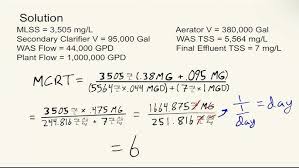 Solution
MLSS = 3,505 mg/L
Secondary Clarifier V = 95,000 Gal
WAS Flow = 44,000 GPD
Plant Flow = 1,000,000 GPD
Aerator V = 380,000 Gal
WAS TSS = 5,564 mg/L
Final Effluent TSS = 7 mg/L
MCRT = 3505 mg/L (.38 MG + .095 MG)
(5564 mg/L × .044 MGD) + (7 mg/L × 1 MGD)
= 3505 mg/L × .475 MG
244.816 + 7
= 1664.875 MG
251.816
1
1/day
= day
= 6